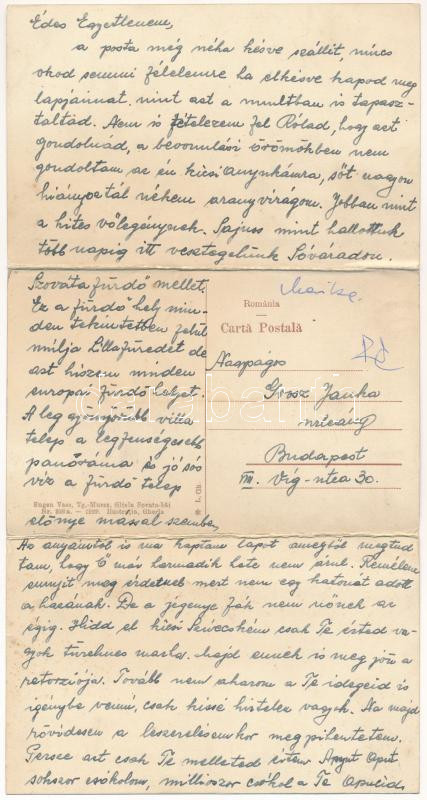 Édes Egyetlenem,
a posta még néha késve szállít, nincs
okod semmi félelemre ha elkésve kapod meg
lapjaimat, mint azt a multban is tapasz-
taltad. Nem is fételezem fel Rólad, hogy azt
gondolnád, a bevonulási örömökben nem
gondoltam az én kicsi anyukámra, sőt nagyon
hiányoztál nékem aranyvirágom. Jobban mint
a hites vőlegénynek. Sajnos mint hallottuk
több napig itt vesztegelünk Sóváradon.
Szováta fürdő mellett.
Ez a fürdő hely min-
den tekintetben felül
múlja Lillafüredet de
azt hiszem minden
europai fürdő helyet.
A leg gyönyörűbb villa
telep a legfenségesebb
panoráma és jó sós
víz a fürdő telep
előnye mással szemben.
România
Cartă Postală
Nagyságos
Grosz Janka
urleány
Budapest
VII. Víg-utca 30.
Eugen Vass, Tg.-Mures, filiala Sovata-băi
* I. Gh.
darabanth
Az anyámtól is ma kaptam lapot amegből megtud
tam, hogy Ő már harmadik hete nem árul. Remélem
ennyit meg érdemel mert nem egy katonát adott
a hazának. De a jegenye fák nem nőnek az
égig. Hidd el kicsi Szivecském csak Te érted va-
gyok türelmes marha. Majd ennek is meg jön a
retorziója. Tovább nem akarom a Te idegeid is
igénybe venni, csak kissé hirtelen vagyok. Na majd
rövidesen a leszerelésemkor meg pihentetem.
Persze azt csak Te melletted értem. Anyut Aput
sokszor csókolom, milliószor csókol a Te Apucid.